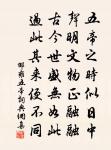 五帝之時似日中
聲明文物正融融
古今世盛無如此
過此其來便不同
邵雍五帝詞典網集